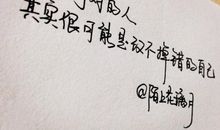 的人
其实很可能是放不掉错的自己
@陌上花满月